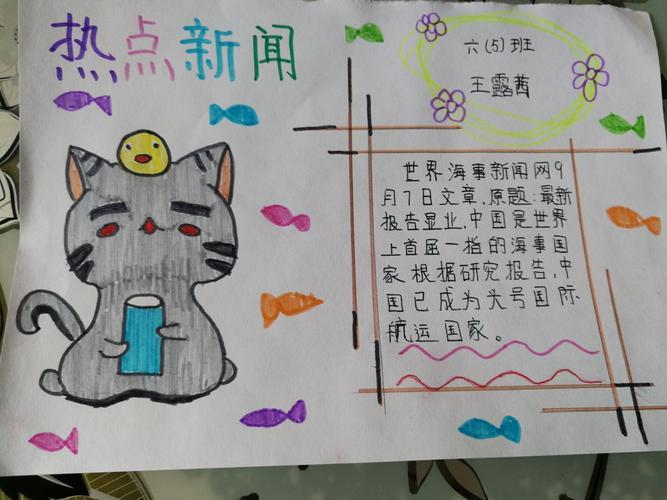 热点新闻
六(5)班
王露茜
世界海事新闻网9
月7日文章,原题:最新
报告显业,中国是世界
上首屈一指的海事国
家根据研究报告,中
国已成为头号国际
航运国家。